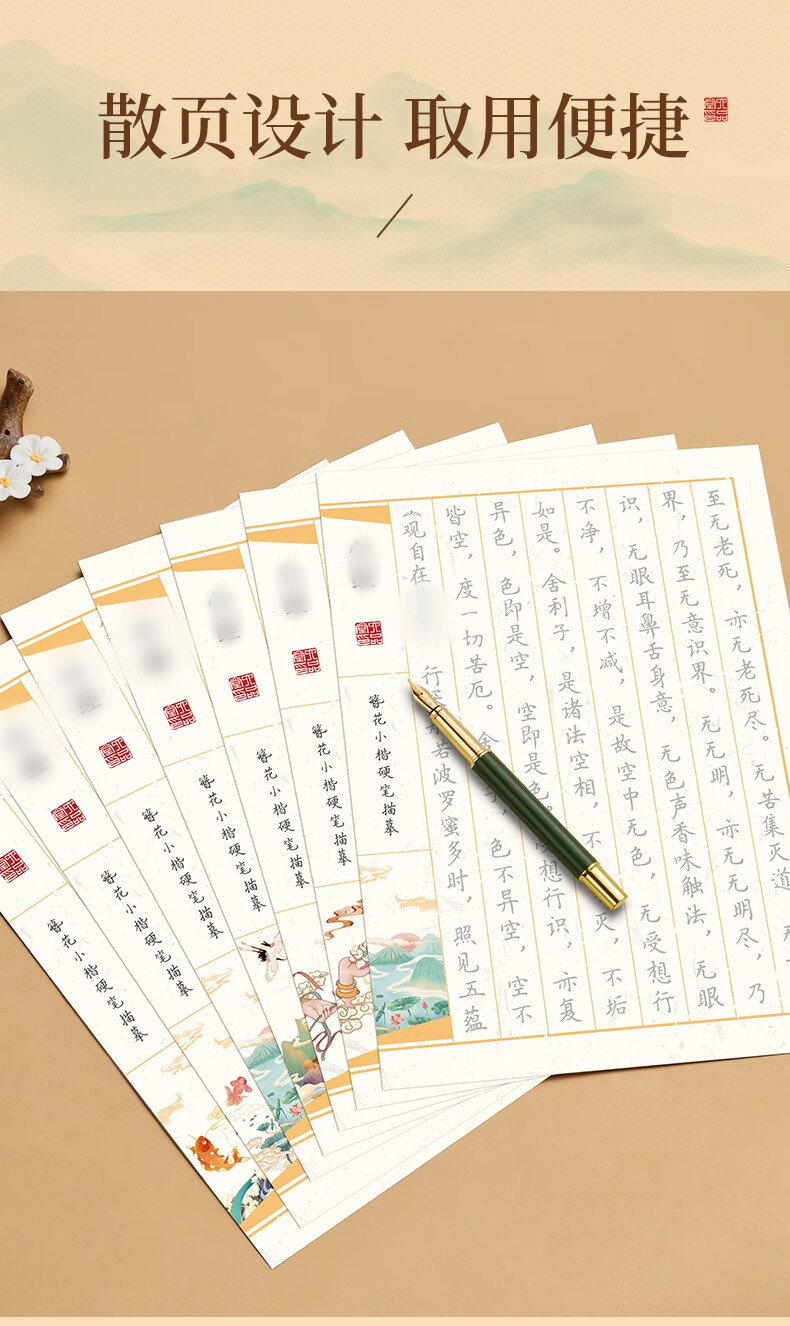 散页设计 取用便捷
簪花小楷硬笔描摹
簪花小楷硬笔描摹
簪花小楷硬笔描摹
簪花小楷硬笔描摹
簪花小楷硬笔描摹
簪花小楷硬笔描摹
簪花小楷硬笔描摹
观自在 行 若波罗蜜多时，照见五蕴
皆空，度一切苦厄。 色不异空，空不
异色，色即是空，空即是 想行识，亦复
如是。舍利子，是诸法空相，不 灭，不垢
不净，不增不减，是故空中无色，无受想行
识，无眼耳鼻舌身意，无色声香味触法，无眼
界，乃至无意识界。无无明，亦无无明尽，乃
至无老死，亦无老死尽。无苦集灭道